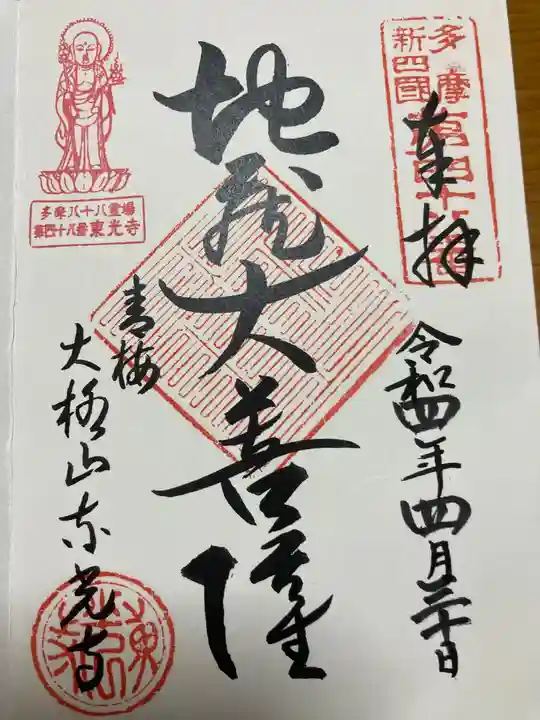 多摩
新四國
第四十八番
奉拝
令和四年四月三十日
地蔵大菩薩
多摩八十八霊場
第四十八番 東光寺
青梅
大柳山東光寺